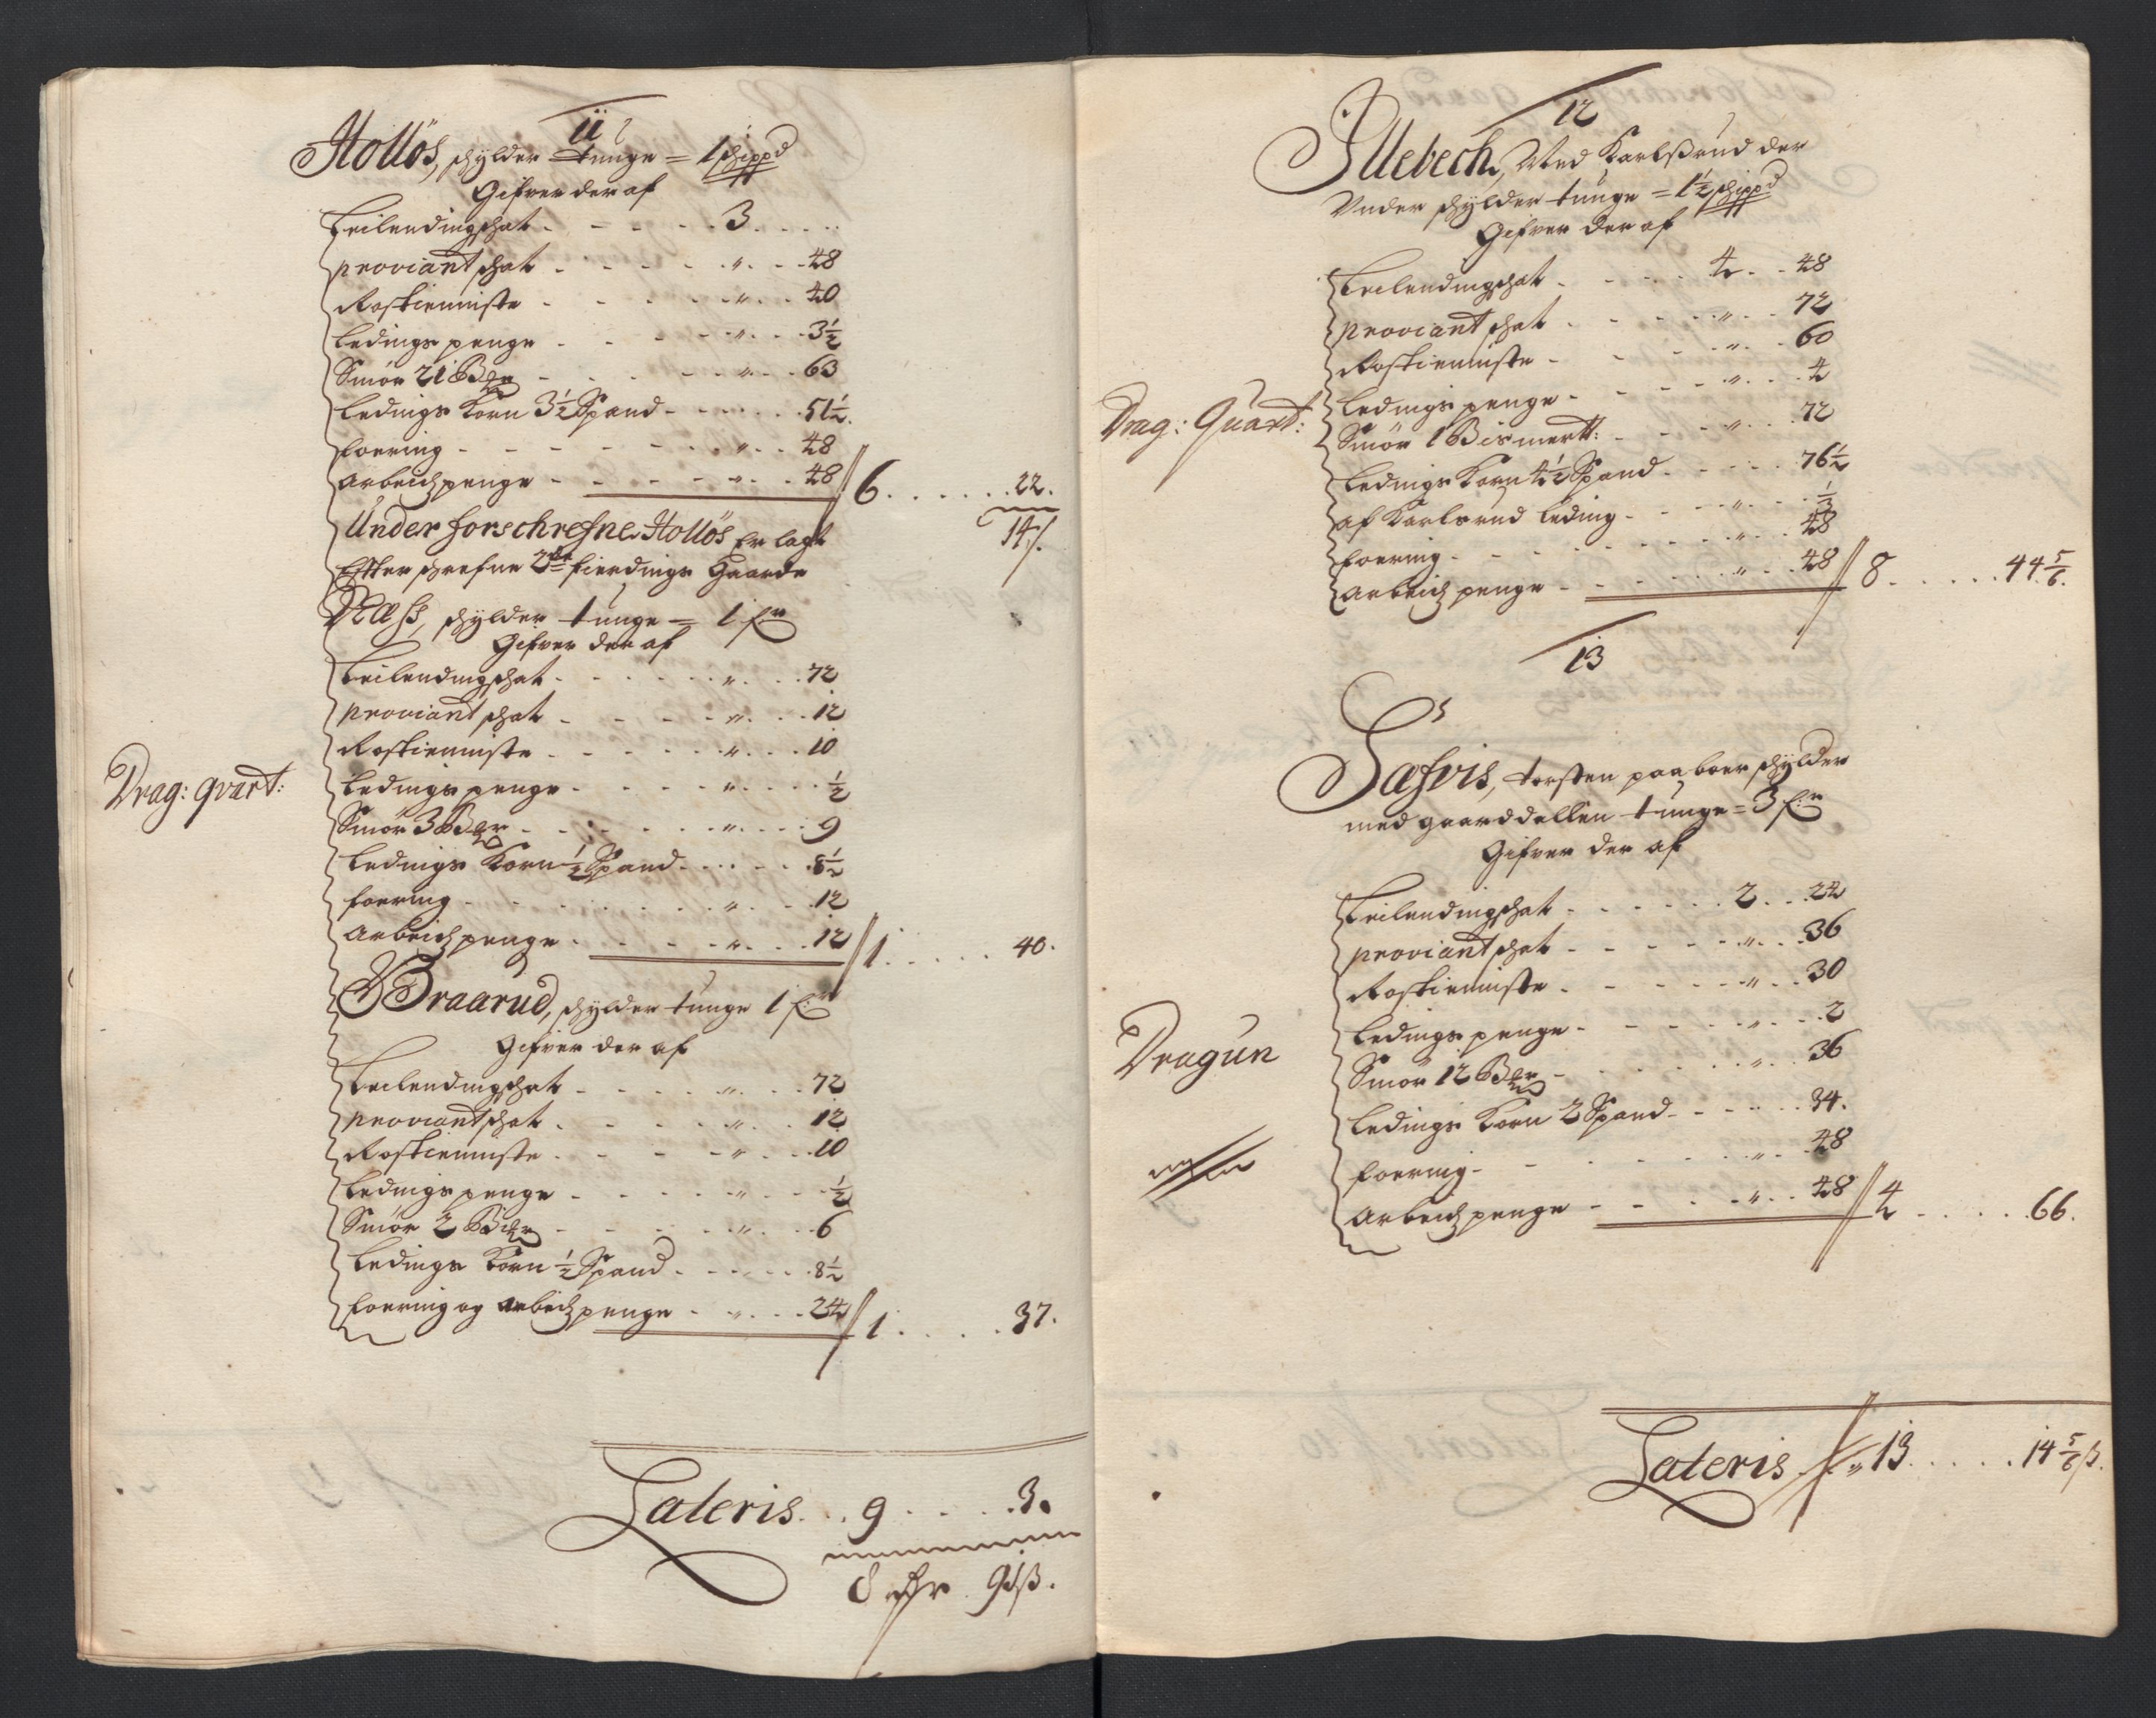 11
Holløs, schylder tunge = 1 schippd
Gifver der af
Leilendingschat - - - - 3 . . . .
proviant schat - - - - „ - - 48
Rostienniste - - - - „ - - 40
Ledings penge - - - - „ - - 3½
Smør 21 Bler - - - - „ - - 63
Ledings Korn 3½ Spand - - - - 51½
foering - - - - „ - - 48
Arbeidz penge - - - - „ - - 48 // 6 . . . . . 22.
14 /.
Under forschrefne Holløs Er lagt
Efter schrefne 2de fierdings Gaarde
Drag: qvart:
Næss, schylder tunge = 1 fr
Gifver der af
Leilendingschat - - - - „ - - 72
proviant schat - - - - „ - - 12
Rostienniste - - - - „ - - 10
Ledings penge - - - - „ - - ½
Smør 3 Bler - - - - „ - - 9
Ledings Korn ½ Spand - - - - 8½
foering - - - - „ - - 12
Arbeidz penge - - - - „ - - 12 // 1 . . . . . 40.
Braarud, schylder tunge 1 fr
Gifver der af
Leilendingschat - - - - „ - - 72
proviant schat - - - - „ - - 12
Rostienniste - - - - „ - - 10
Ledings penge - - - - „ - - ½
Smør 2 Bler - - - - „ - - 6
Ledings Korn ½ Spand - - - - 8½
foering og arbeidz penge - - „ - - 24 // 1 . . . . . 37.
Lateris . . 9 . . . . 3.
8 rdr 91 ß.
12
Illebech, Med Karlsrud der
Under schylder tunge = 1½ schippd
Gifver der af
Drag: Quart:
Leilendingschat - - - - 4 - - 48
proviant schat - - - - „ - - 72
Rostienniste - - - - „ - - 60
Ledings penge - - - - „ - - 4
Smør 1 Bismertt: - - - - „ - - 72
Ledings Korn 4½ Spand - - - - 76½
af Karlsrud leding - - - - „ - - ⅓
foering - - - - „ - - 48
Arbeidz penge - - - - „ - - 48 // 8 . . . . . 44 5/6.
13
Sæfvis, torsten paaboer schylder
med gaarddellen tunge = 3 fr
Gifver der af
Dragun
Leilendingschat - - - - 2 - - 24
proviant schat - - - - „ - - 36
Rostienniste - - - - „ - - 30
Ledings penge - - - - „ - - 2
Smør 12 Bler - - - - „ - - 36
Ledings Korn 2 Spand - - - - 34.
foering - - - - „ - - 48
Arbeidz penge - - - - „ - - 48 // 4 . . . . . 66.
Lateris „ 13 . . . . . 14 5/6 ß.